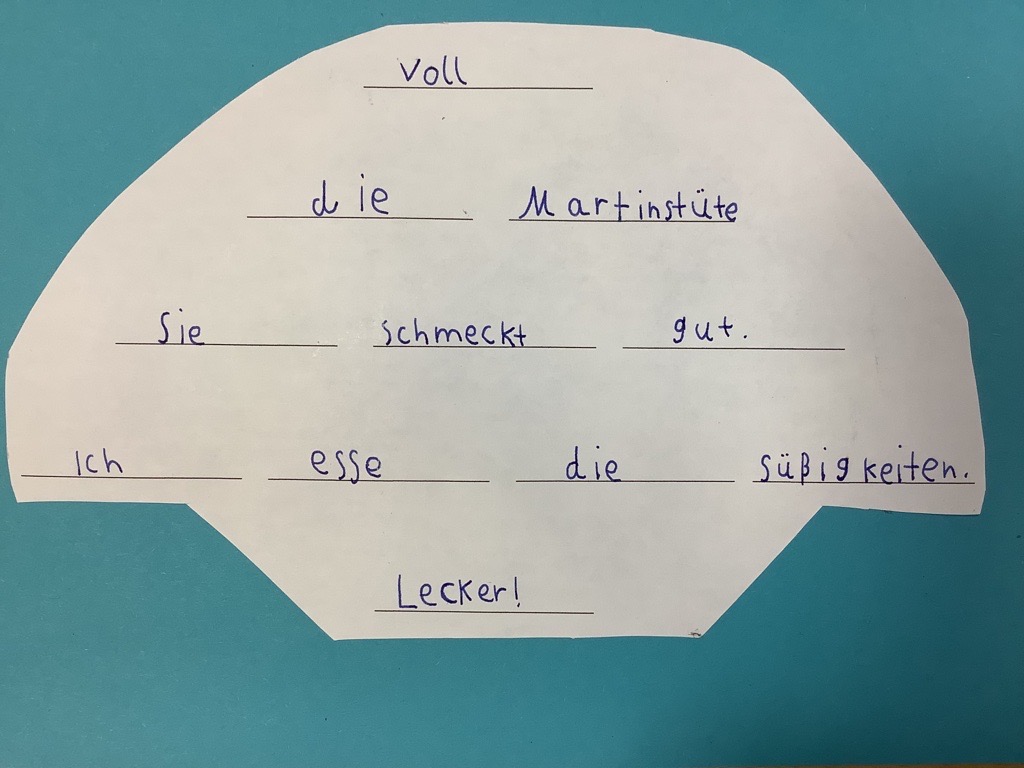 voll
die Martinstüte
Sie schmeckt gut.
Ich esse die süßigkeiten.
Lecker!